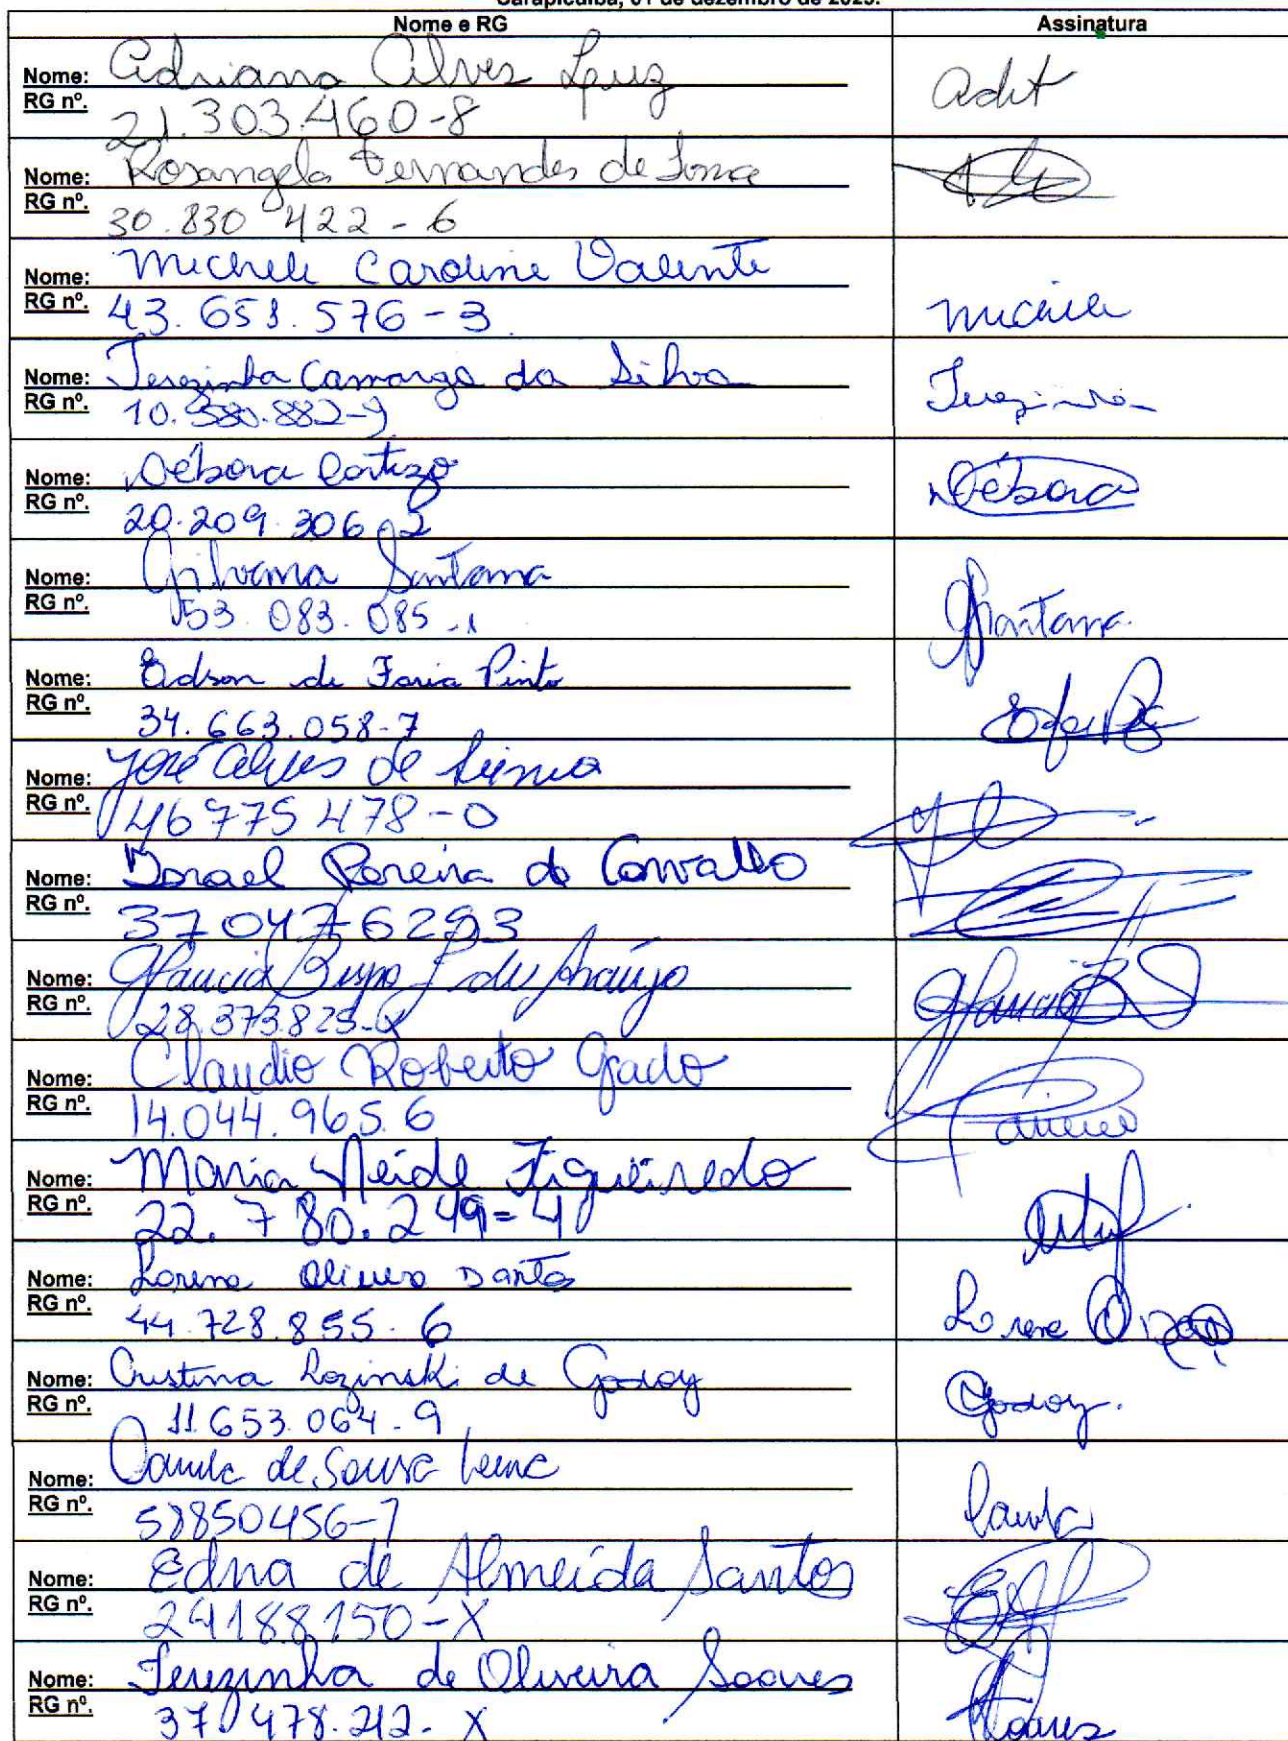 Carapicuíba, 01 de dezembro de 2023.
Nome e RG Assinatura
Nome: Adriana Alves Luz
RG nº. 21.303.460-8
Nome: Rosangela Fernandes de Souza
RG nº. 30.830 422-6
Nome: Michele Caroline Valente
RG nº. 43.651.576-3 Michele
Nome: Terezinha Camargo da Silva Terezinha
RG nº. 10.380.882-9
Nome: Débora Cortizo Débora
RG nº. 20.209.306-2
Nome: Gilvana Santana
RG nº. 53.083.085-1 GSantana
Nome: Edson de Faria Pinto
RG nº. 34.663.058-7
Nome: José Alves de
RG nº. 46 775 478-0
Nome: Israel Pereira de Carvalho
RG nº. 37 047 6293
Nome: Glaucia Bispo de Araújo Glaucia
RG nº. 28.373.823-X
Nome: Claudio Roberto Grado
RG nº. 14.044.965.6
Nome: Maria Neide Figueiredo
RG nº. 22.780.249=4
Nome: Lorena Oliveira Dantas
RG nº. 44.728.855.6 Lorena
Nome: Cristina Lozinski de Godoy
RG nº. 11.653.064-9 Godoy.
Nome: de Sousa
RG nº. 58850456-7
Nome: Edna de Almeida Santos
RG nº. 24188150-X
Nome: Terezinha de Oliveira Soares
RG nº. 37 478.212-X Soares